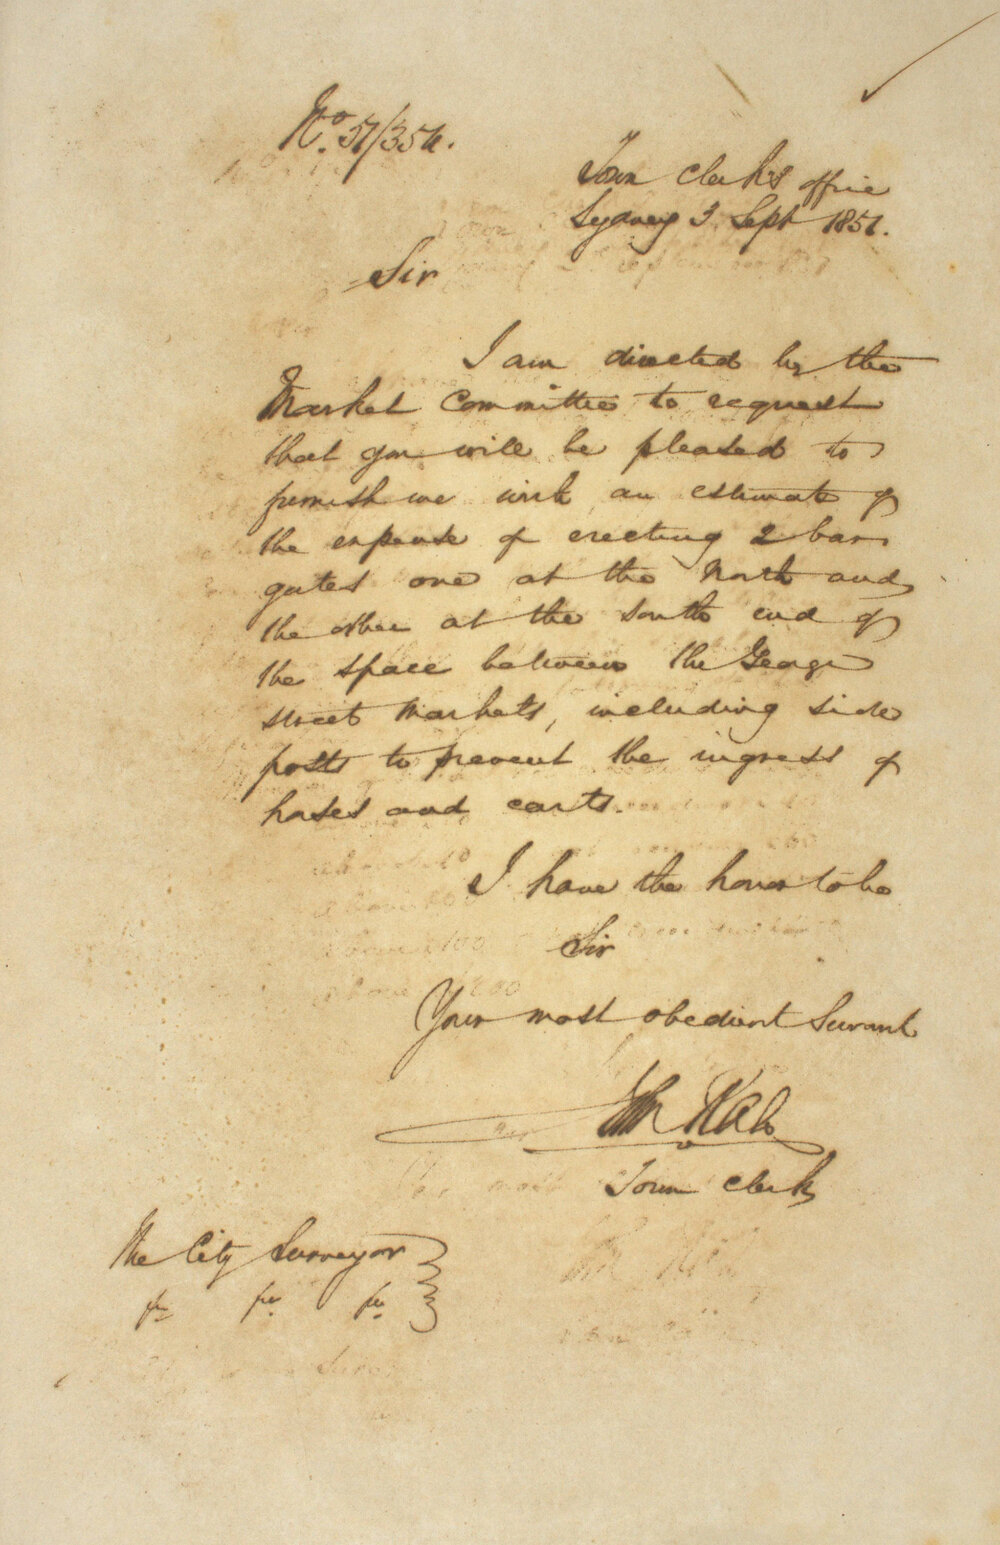 No. 51/354.
Town Clerk's office
Sydney 3 Sept 1851.
Sir
I am directed by the
Market Committee to request
that you will be pleased to
furnish me with an estimate of
the expense of erecting 2 bar
gates one at the North and
the other at the South end of
the space between the George
Street Markets, including side
posts to prevent the ingress of
horses and carts.
I have the honor to be
Sir
Your most obedient Servant
Town Clerk
The City Surveyor